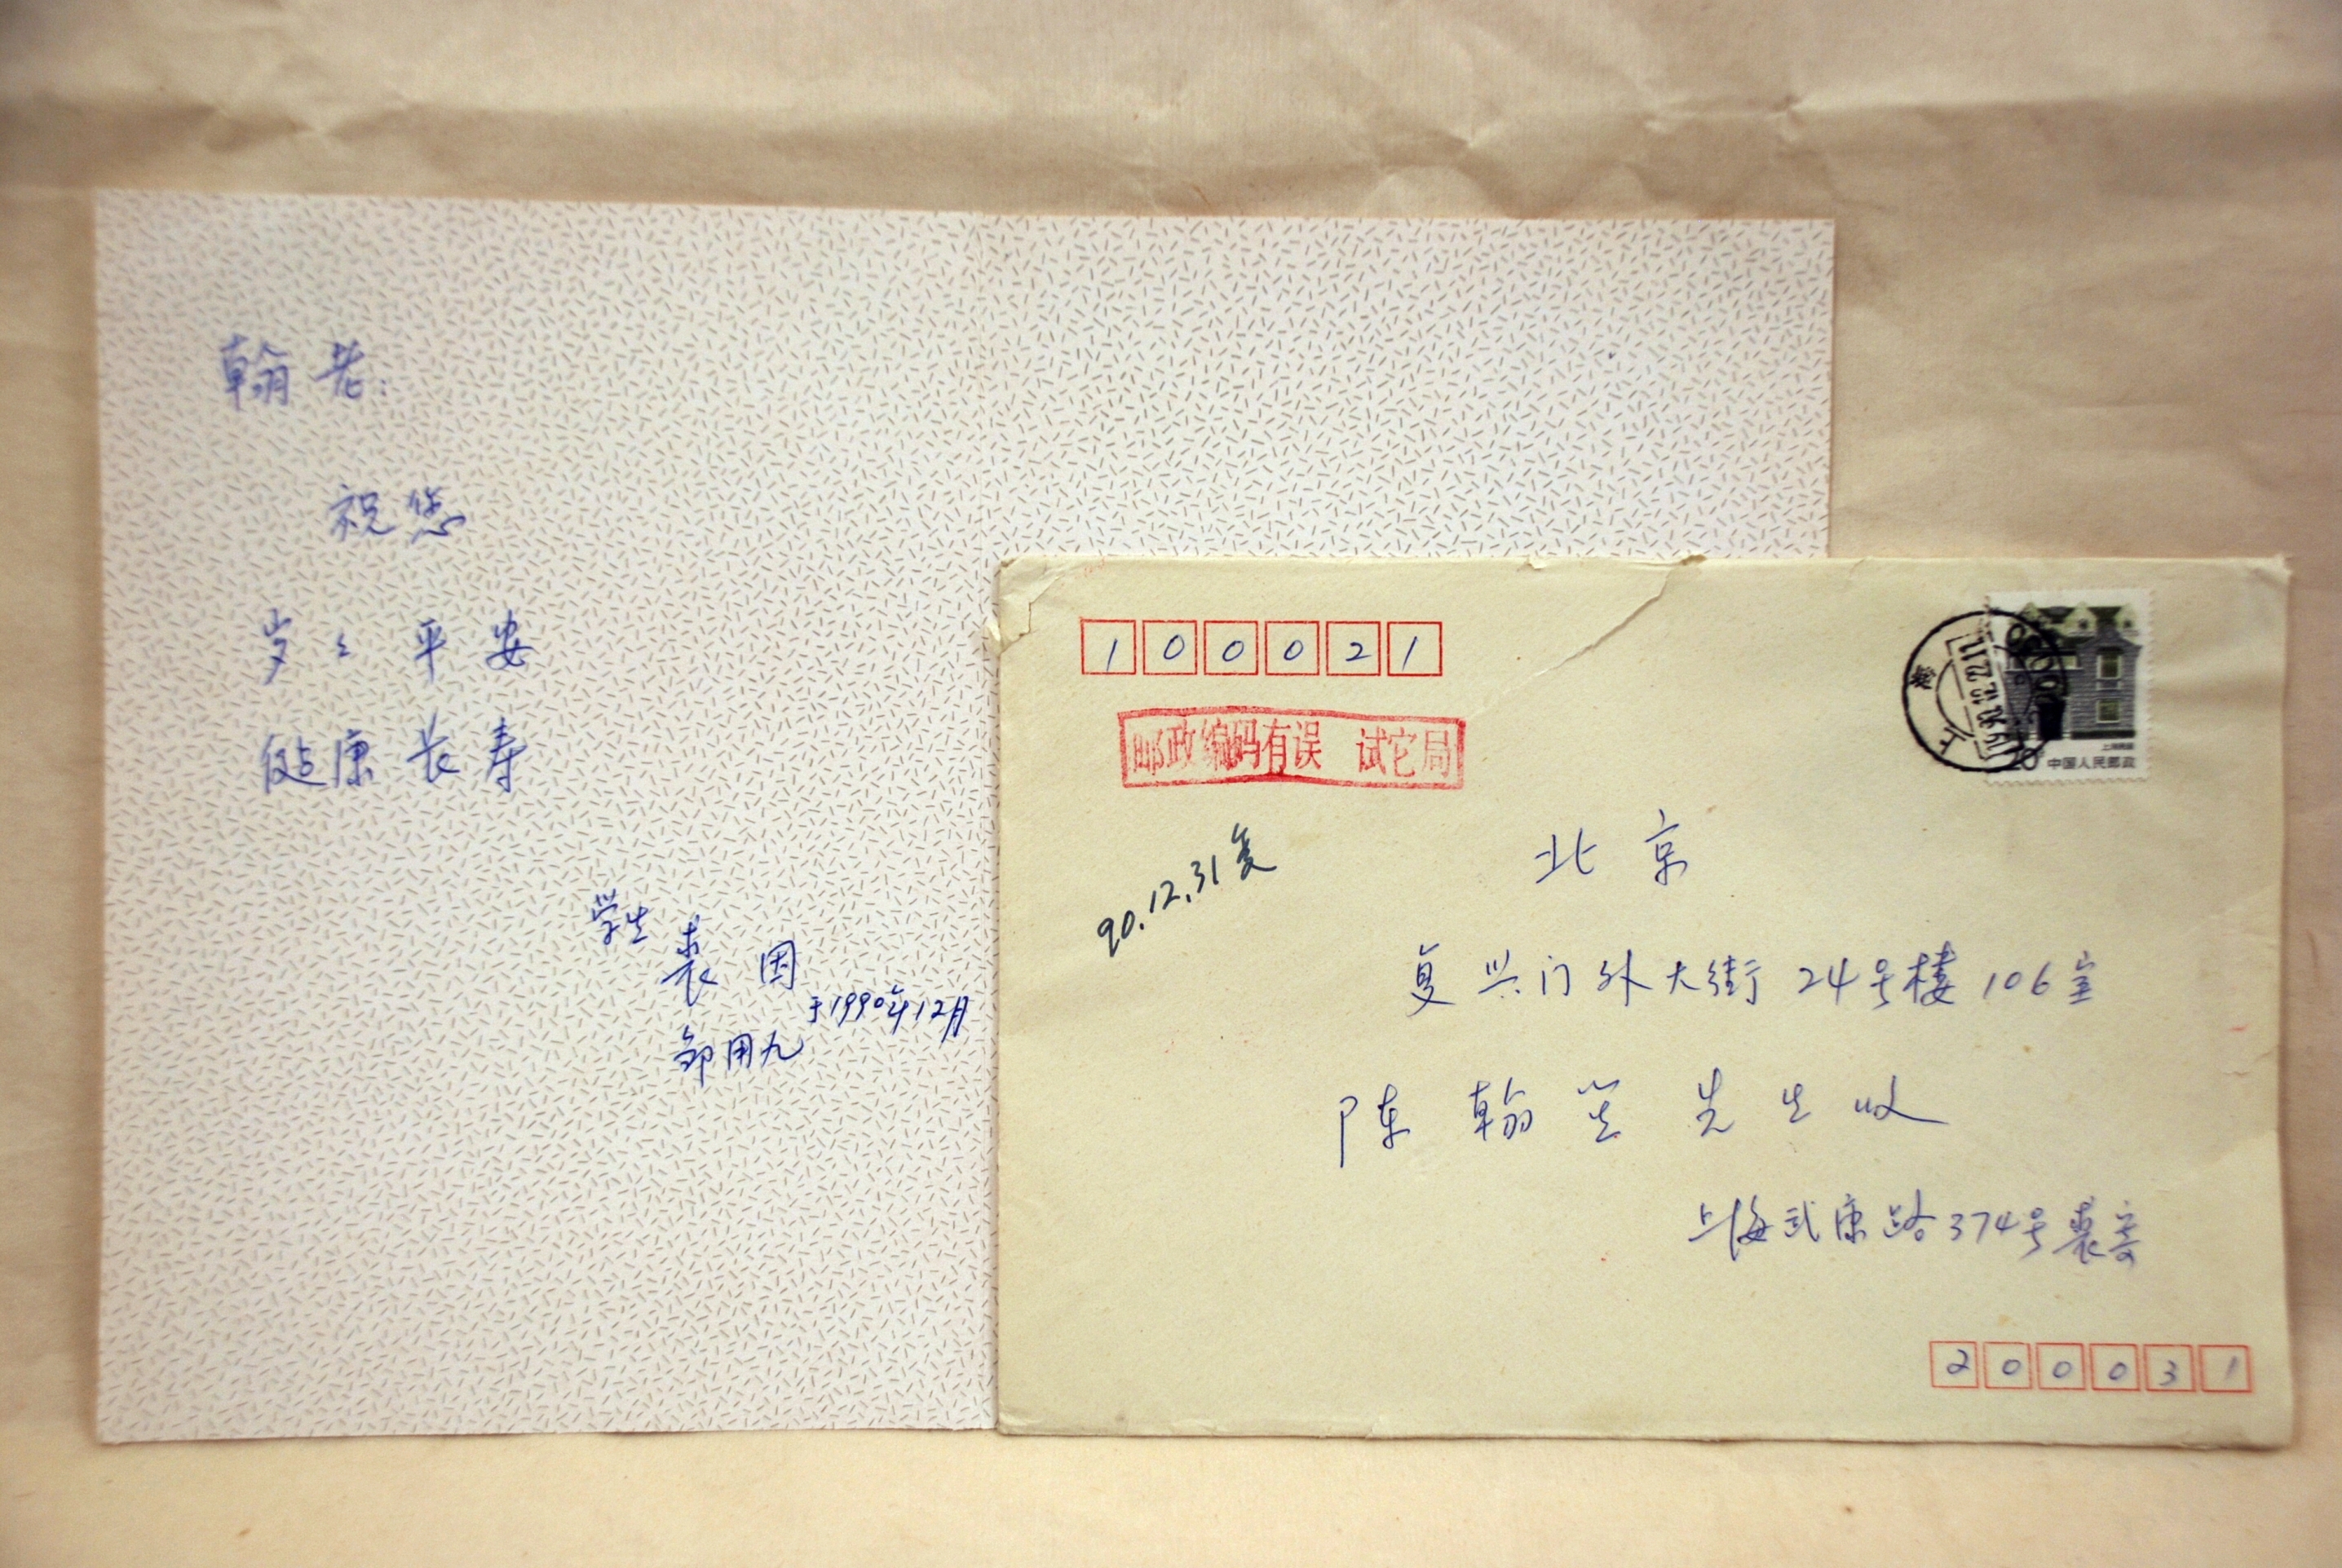 翰老:
祝您
岁々平安
健康长寿
学生
裘因
于1990年12月
邹用九
100021
邮政编码有误 试它局
90.12.31复
上海
1990.12.22.11
20 中国人民邮政
上海民居
北京
复兴门外大街24号楼106室
陈翰笙先生收
上海武康路374号裘寄
200031